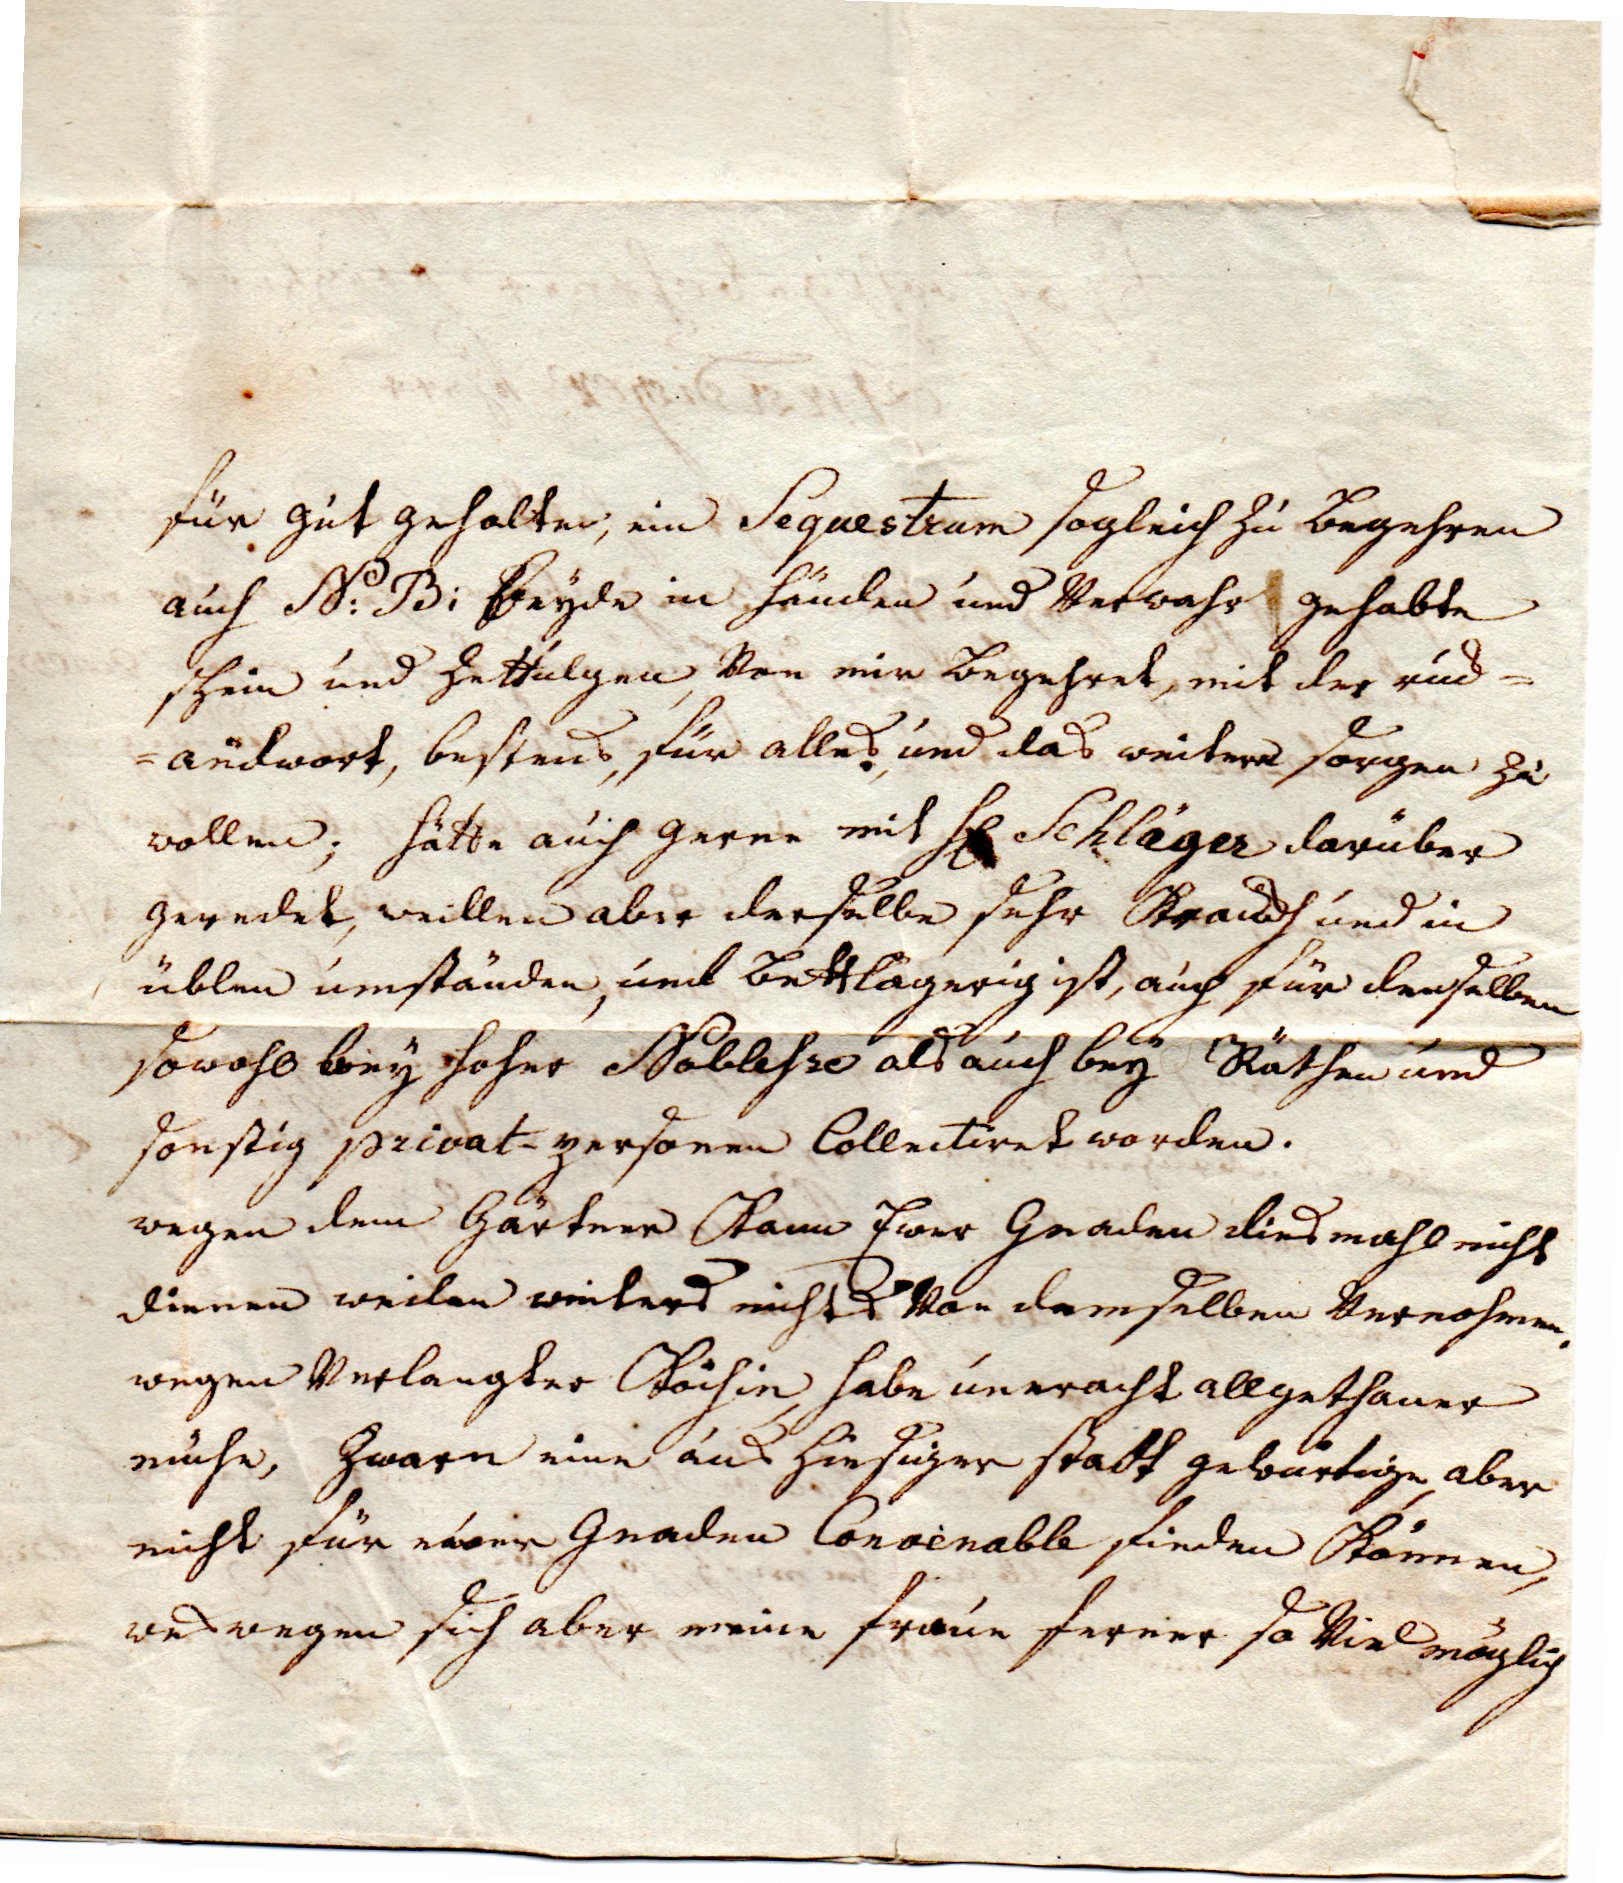 für gut gehalten, ein Sequestrum sogleich zu begehren
auch N: B: beyde in händen und Verwahr gehabte
schein und Zettulgen, Von mir begehret, mit der rüd=
=andwort, bestens, für alles, und das weitere sorgen zu
wollen; hätte auch gerne mit H Schläger darüber
geredet, weillen aber derselbe sehr Kranckh und in
üblen umständen, und bettlägerig ist, auch für denselben
sowohl bey hoher Noblehse als auch bey Räthen und
sonstig privat-personen Collectiret worden.
wegen dem Gärtner Kann Ewer Gnaden diesmahl nicht
dienen weilen weiters nichts Von demselben Vernohmen.
wegen Verlangter Köchin, habe üneracht allgethaner
mühe, Zwarn eine aus hiesiger statt gebürtige, aber
nicht für eüer Gnaden Convenable finden Können,
weswegen sich aber meine fraue ferner so Viel möglich